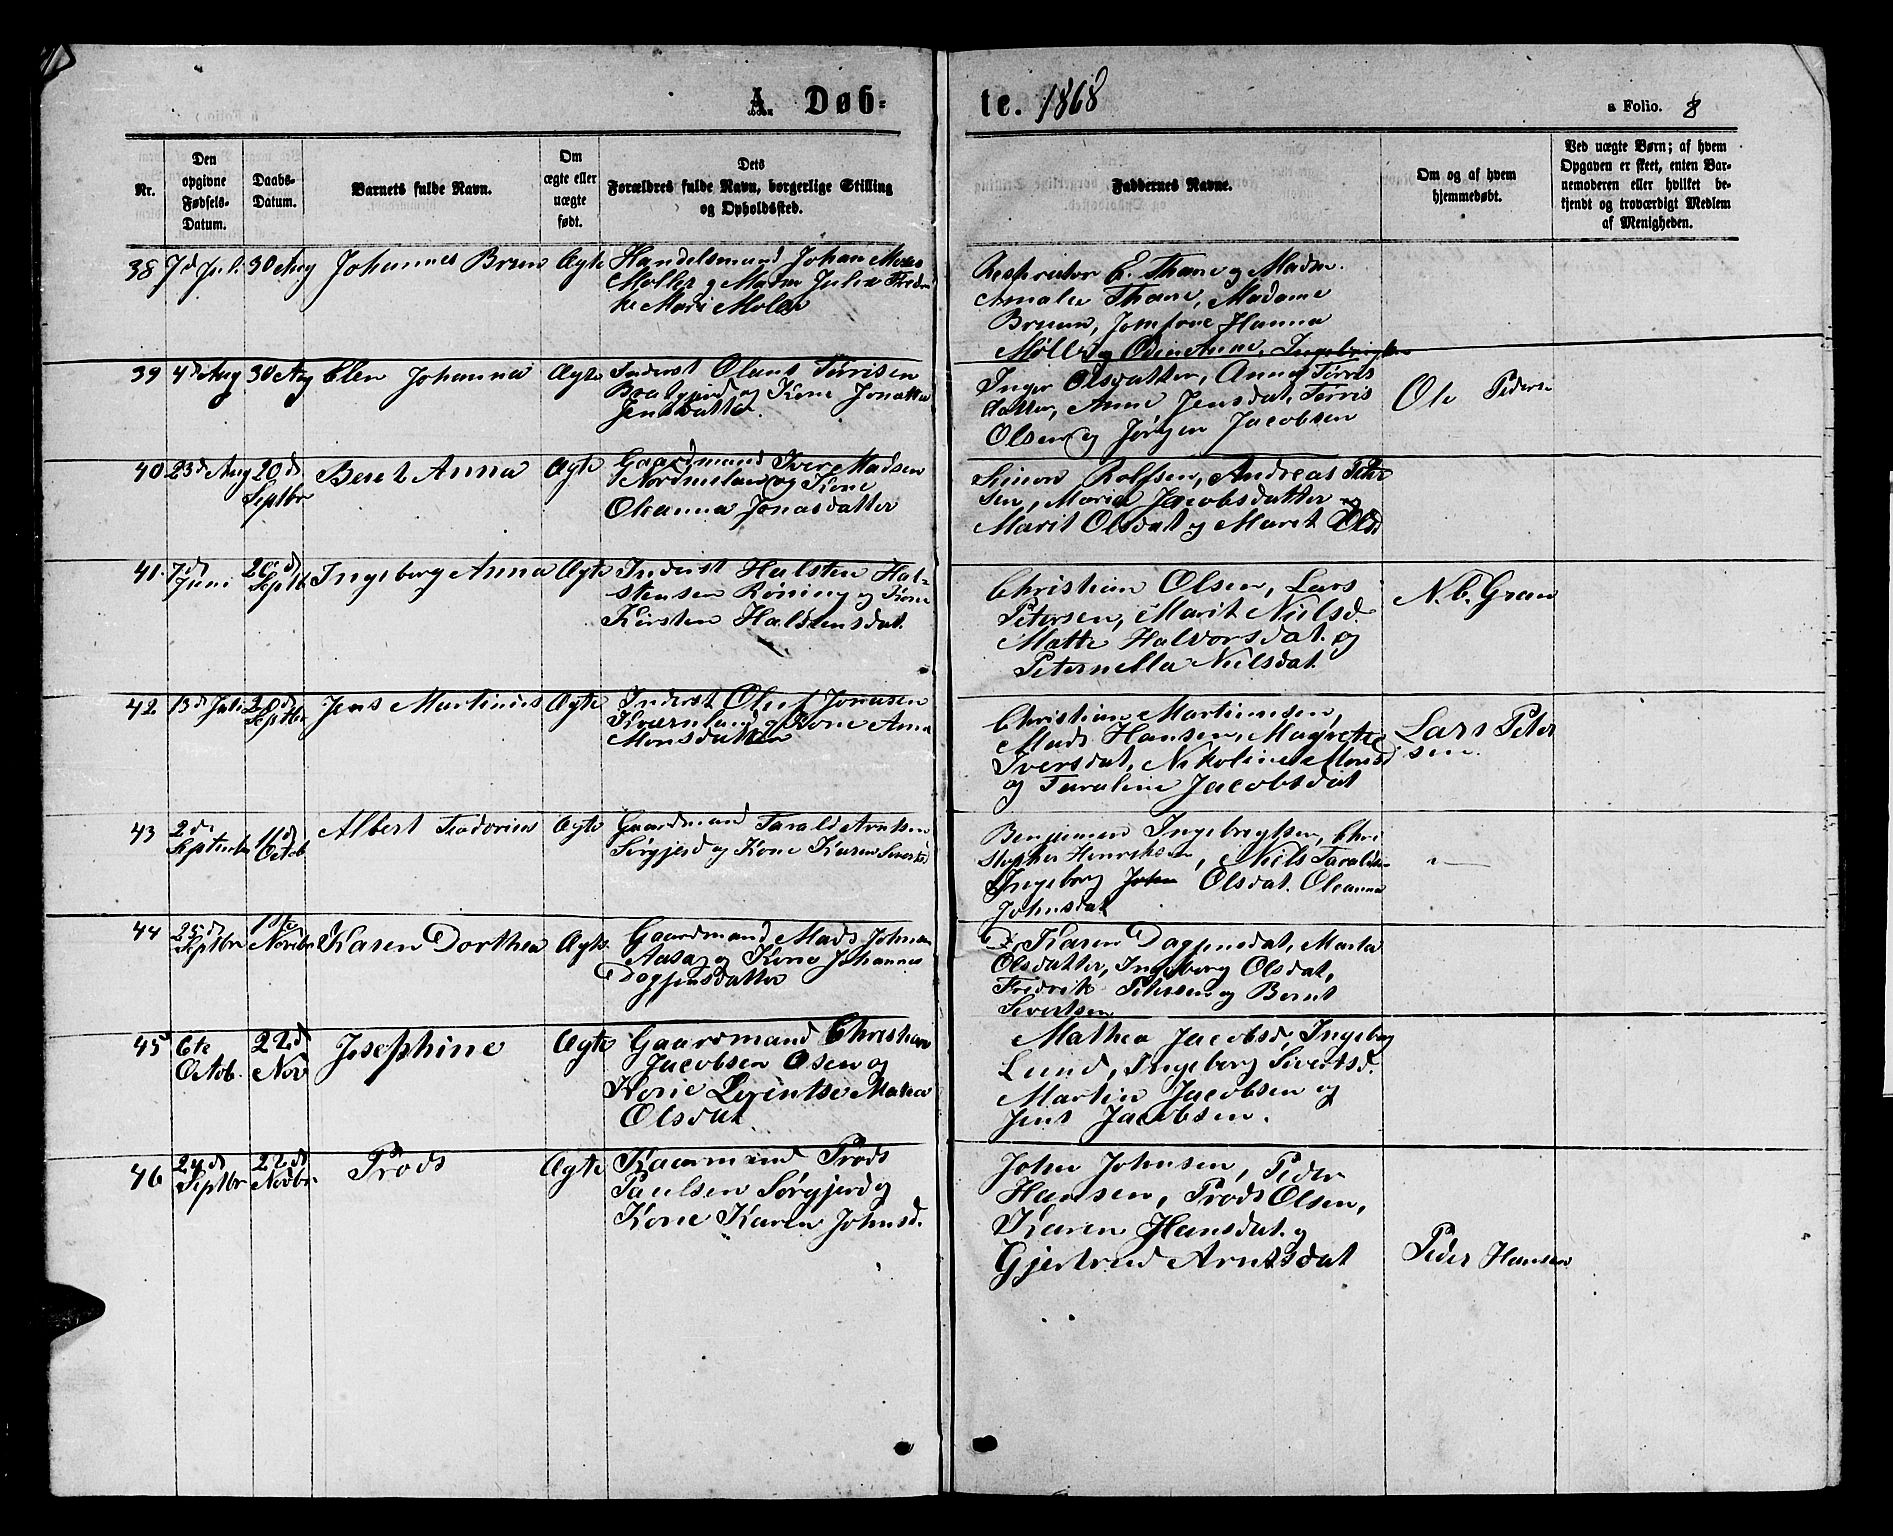 A. Døb-
te. 1868
a Folio. 8
Nr.
Den opgivne Fødsels-Datum.
Daabs-Datum.
Barnets fulde Navn.
Om ægte eller uægte født.
Dets Forældres fulde Navn, borgerlige Stilling og Opholdssted.
Faddernes Navne.
Om og af hvem hjemmedøbt.
Ved uægte Børn; af hvem Opgaven er skeet, enten Barnemoderen eller hvilket bekjendt og troværdigt Medlem af Menigheden.
38 7d Jul. 30 Aug Johannes Bruun Ægte
Handelsmand Johan
Møller og Madm Julia
Mari Moler
E. Thane og Madm.
Amalie Thane, Madame
Bruun, Jomfrue Hanna
Anne
39 4d Aug 30 Aug Elen Johanna Ægte
Inderst Olaus Törrisen
og Kone
Jensdatter.
Inger Olsdatter, Anna Törris
datter, Anne Jensdat, Törris
Olsen og Jørgen Jacobsen
Ole Peders
40 23d Aug 20d Septbr Beret Anna Ægte
Gaardmand Iver Madsen
og Kone
Oleanna Jonasdatter
Simon Rolfsen, Andreas Peter
sen, Maria Jacobsdatter
Marit Olsdat og Maret Olsd
41. 7d Juni 20d Septb Ingeborg Anna Ægte
Inderst Halsten Hal-
stensen Röning og Kone
Kirsten Haldensdat.
Christian Olsen, Lars
Petersen, Marit Nielsd.
Matte Halvorsdat. og
Peternella Nielsdat.
N. C. Gran
42. 13d Juli 20d Septbr Jens Martinus Ægte
Inderst Oluf Jonasen
Kværnland og Kone Anna
Monsdatter
Christian Martinusen,
Mads Hansen, Magrete
Iversdat, Nikoline Monsd
og Taraline Jacobsdat
Lars Peter
sen.
43 2d Septembr 11d Octob Albert Teodorius Ægte
Gaardmand Tarald Arntsen
Sørgjerd og Kone Karen
Benjamin Ingebrigtsen, Chri
stopher Henriksen, Niels
Ingeborg John Olsdat. Oleanna
Johnsdat
"
44 25d Septbr 1ste Novbr Karen Dorthea Ægte
Gaardmand Mads Johnsen
Aasa og Kone Johannes
Dagfinsdatter
Karen Dagfinsdat, Marta
Olsdatter, Ingeborg Olsdat,
Fredrik Petersen og Bernt
Sivertsen
45 6te Octob. 22d Nov Josephine Ægte
Gaardmand Christian
Jacobsen Osen og
Kone Lorentse Matea
Olsdat
Mathea Jacobsd, Ingeborg
Lund, Ingeborg Sivertsd.
Martin Jacobsen og
Jens Jacobsen.
46 24d Septbr 22d Novbr. Prods Ægte
Gaarmand Prods
Paulsen Sørgjerd og
Kone Karen Johnsd.
John Johnsen, Peder
Hansen, Prods Olsen,
Karen Hansdat. og
Gjertrud Arntsdat
Peder Hansen